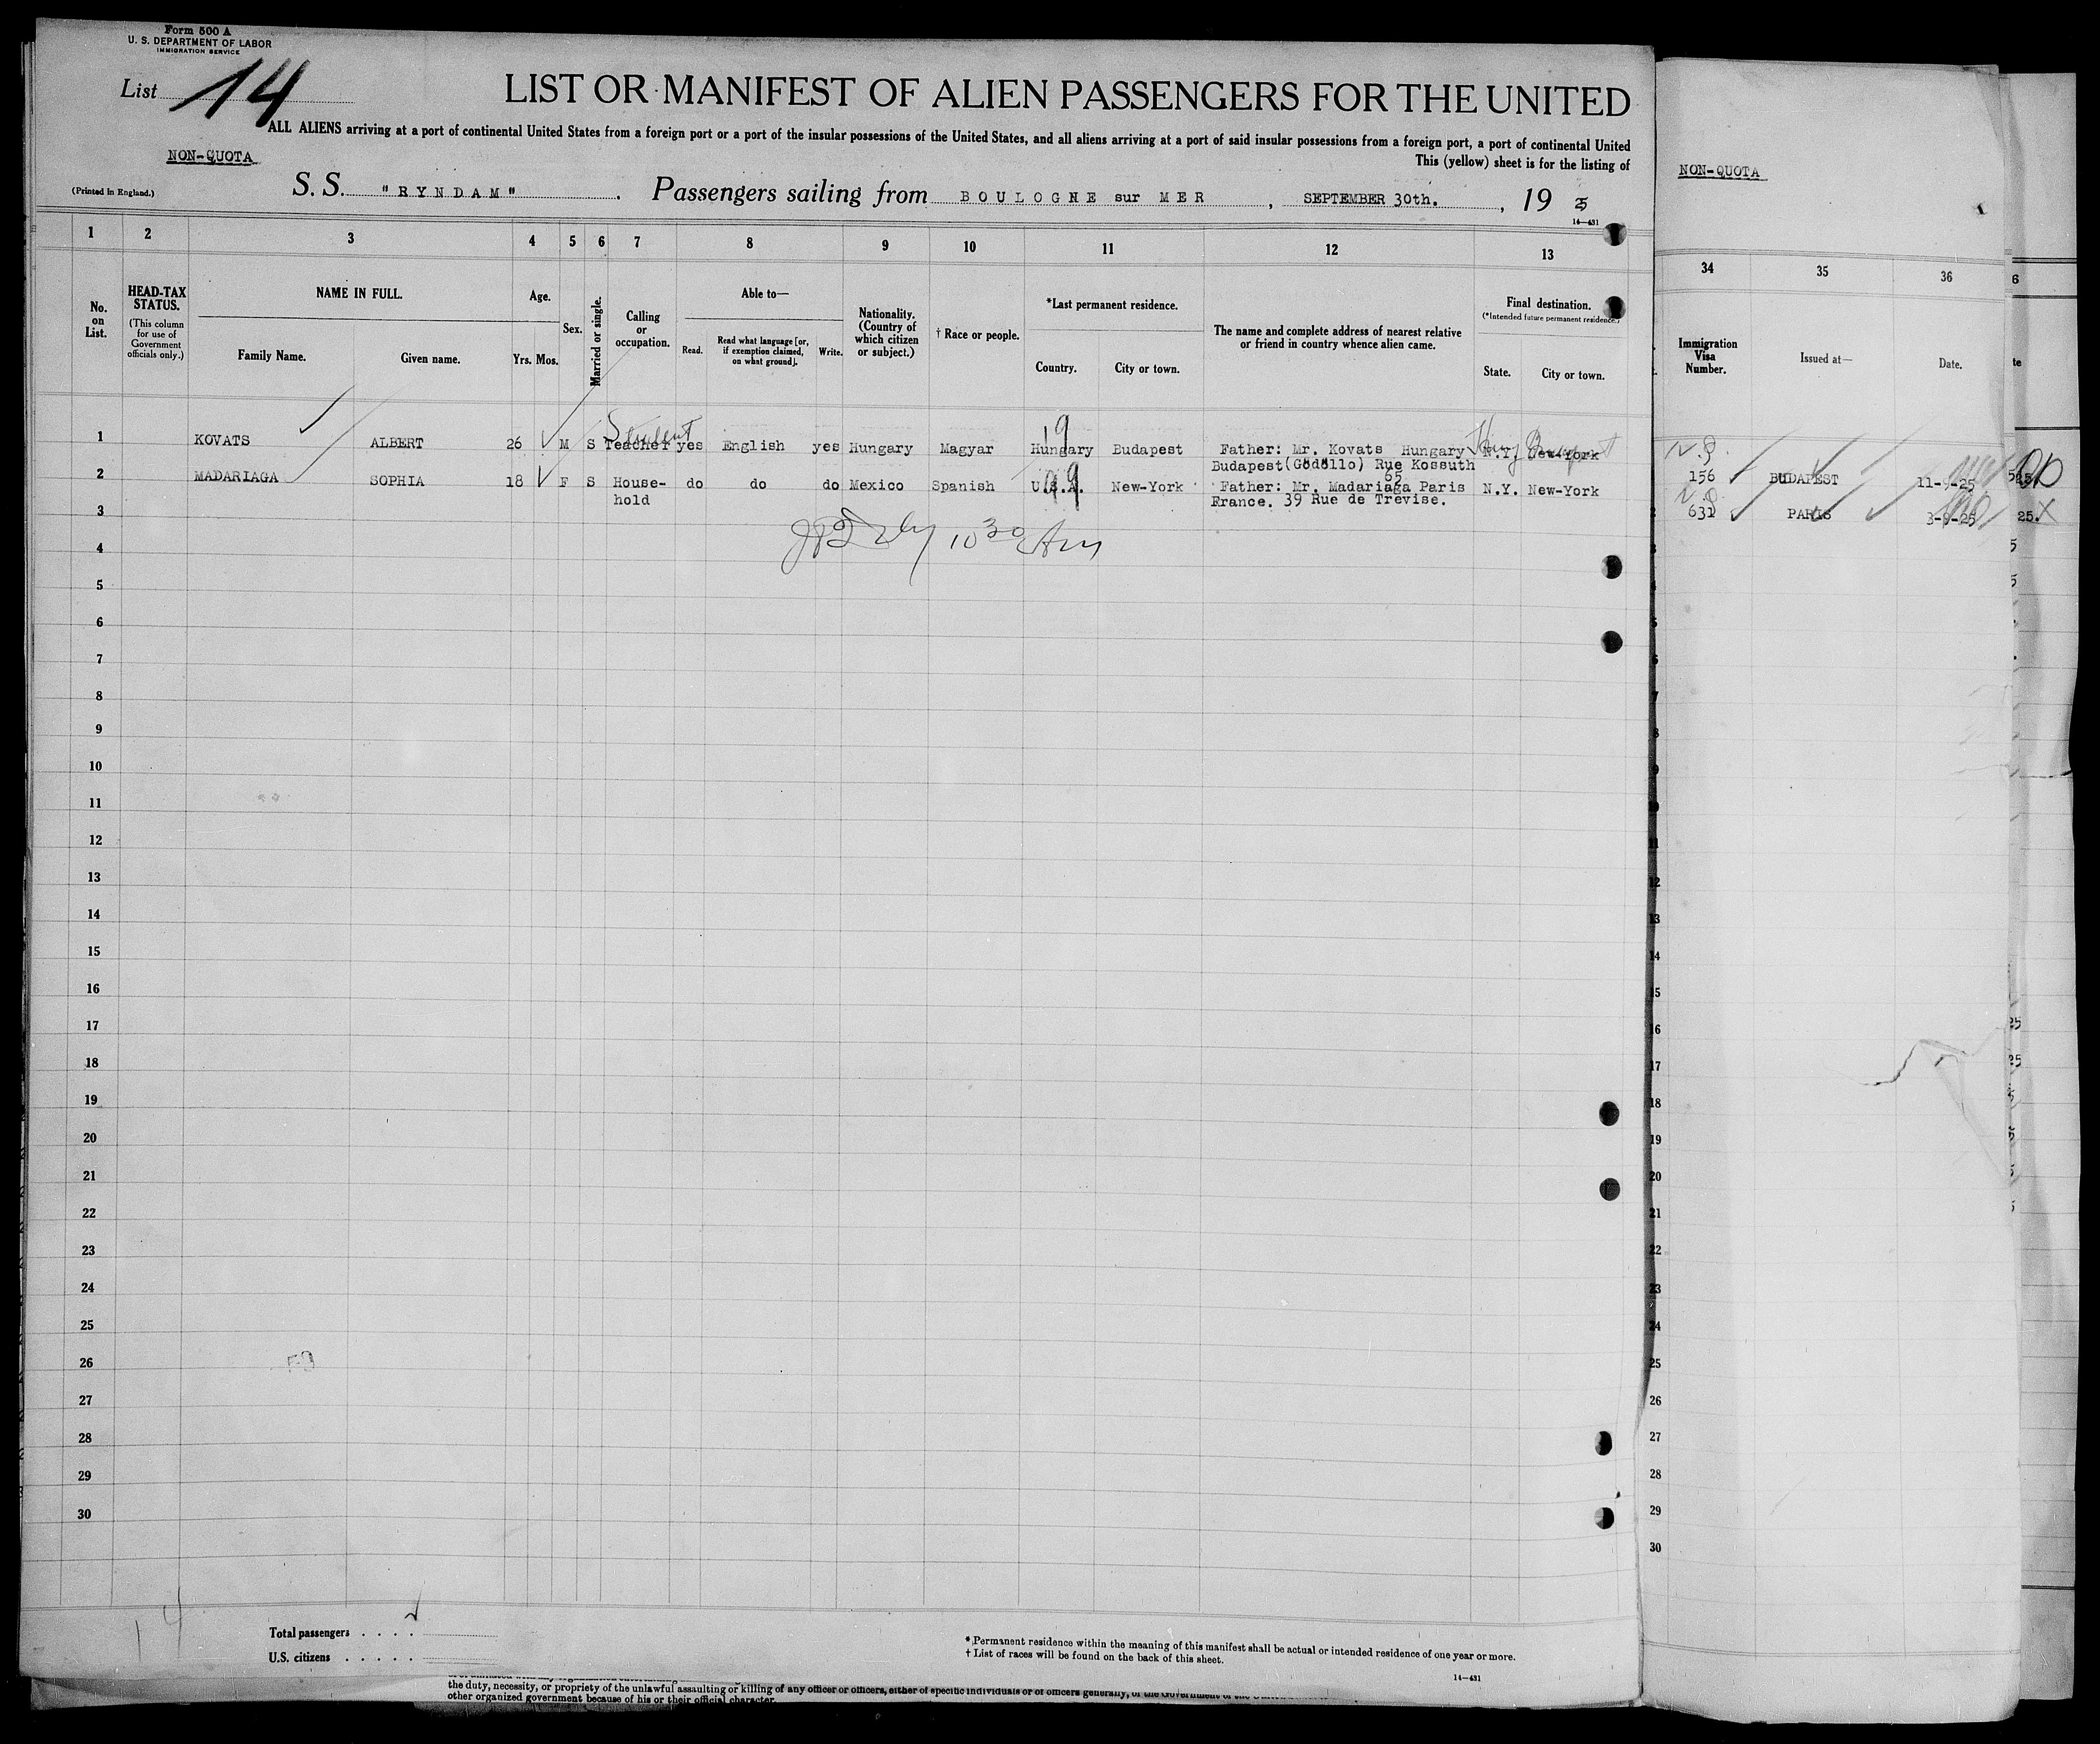 Form 500 A
U. S. DEPARTMENT OF LABOR
IMMIGRATION SERVICE
List 14
LIST OR MANIFEST OF ALIEN PASSENGERS FOR THE UNITED
ALL ALIENS arriving at a port of continental United States from a foreign port or a port of the insular possessions of the United States, and all aliens arriving at a port of said insular possessions from a foreign port, a port of continental United
This (yellow) sheet is for the listing of
NON-QUOTA
(Printed in England.)
S. S. "RYNDAM". Passengers sailing from BOULOGNE sur MER, SEPTEMBER 30th., 19 5
14—431
1 2 3 4 5 6 7 8 9 10 11 12 13
No. on List.
HEAD-TAX STATUS.
(This column for use of Government officials only.)
NAME IN FULL.
Family Name. Given name.
Age.
Yrs. Mos.
Sex.
Married or single.
Calling or occupation.
Able to—
Read. Read what language [or, if exemption claimed, on what ground]. Write.
Nationality. (Country of which citizen or subject.)
† Race or people.
*Last permanent residence.
Country. City or town.
The name and complete address of nearest relative or friend in country whence alien came.
Final destination.
(*Intended future permanent residence.)
State. City or town.
Student
19
1 KOVATS ALBERT 26 M S Teacher yes English yes Hungary Magyar Hungary Budapest Father: Mr. Kovats Hungary N.Y. New-York
Budapest(Gödöllo) Rue Kossuth
65
2 MADARIAGA SOPHIA 18 F S House- do do do Mexico Spanish U.S.A. New-York Father: Mr. Madariaga Paris N.Y. New-York
hold France. 39 Rue de Trevise.
3
10 30 Am
4
5
6
7
8
9
10
11
12
13
14
15
16
17
18
19
20
21
22
23
24
25
26
27
28
29
30
14
Total passengers . . . .
U.S. citizens . . . . .
* Permanent residence within the meaning of this manifest shall be actual or intended residence of one year or more.
† List of races will be found on the back of this sheet.
14—431
the duty, necessity, or propriety of the unlawful assaulting or killing of any officer or officers, either of specific individuals or of officers generally, of the Government of the
other organized government because of his or their official character.
NON-QUOTA
34 35 36
Immigration Visa Number.
Issued at—
Date.
156 BUDAPEST 11-9-25
631 PARIS 3-9-25
25.
12
13
14
15
16
17
18
19
20
21
22
23
24
25
26
27
28
29
30